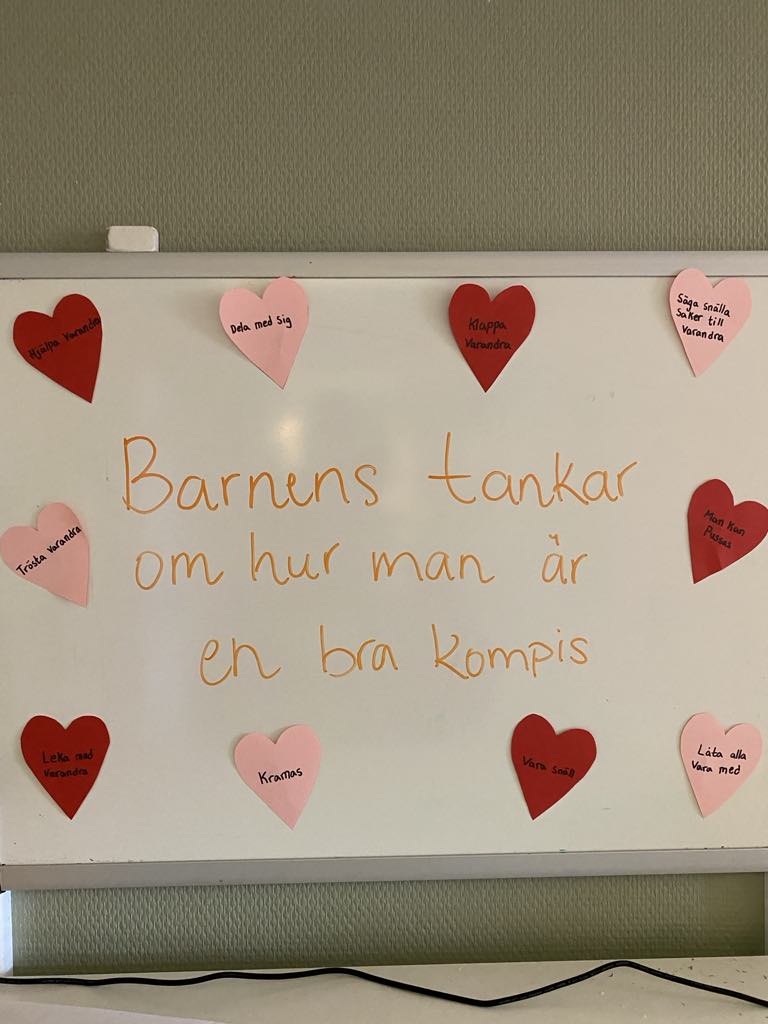 Hjälpa Varandra
Dela med Sig
Klappa
Varandra
Säga snälla
Saker till
Varandra
Barnens tankar
om hur man är
en bra kompis
Trösta Varandra
Man kan
Pussas
Leka med
Varandra
Kramas
Vara snäll
Låta alla
Vara med